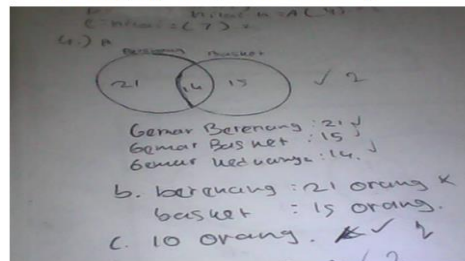 c. nilai = (7) =
4.) A
Berenang Basket
21 14 15 ✓ 2
Gemar Berenang : 21 ✓
Gemar Basket : 15 ✓
Gemar keduanya : 14 ✓
b. berenang : 21 orang ×
basket : 15 orang.
c. 10 orang. ✓ 2